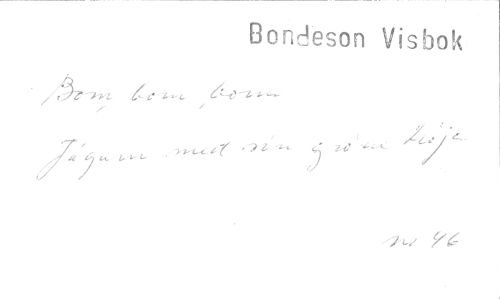 Bondeson Visbok
Bom, bom, bom
Jägarn med sin gröne tröje
nr 46